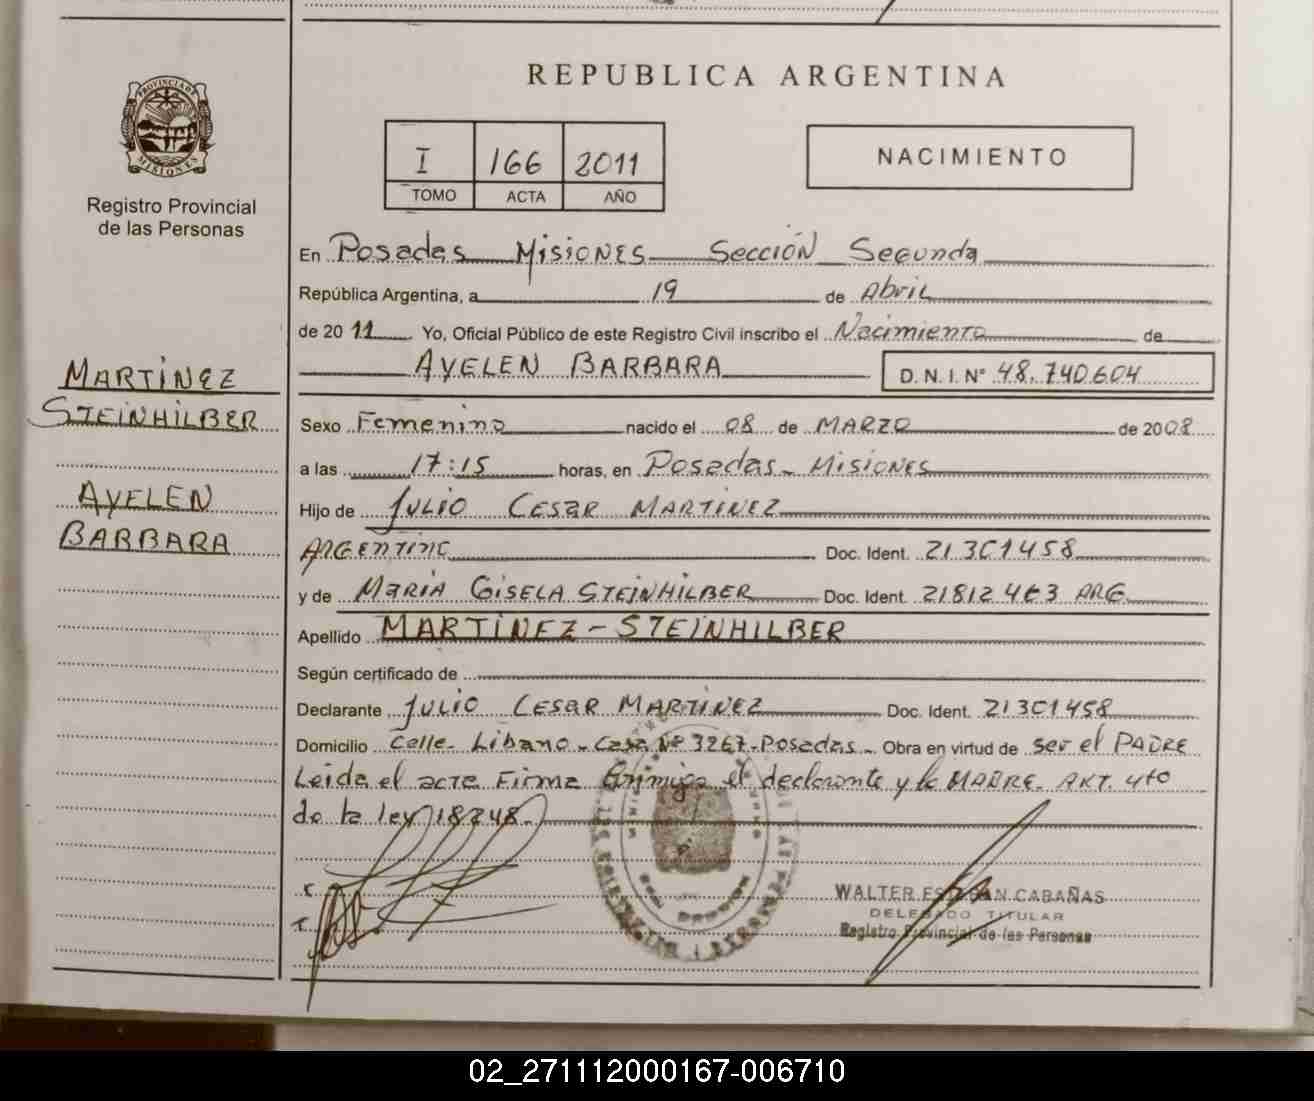 REPUBLICA ARGENTINA
PROVINCIA DE
MISIONES
Registro Provincial
de las Personas
I 166 2011
TOMO ACTA AÑO
NACIMIENTO
En Posadas Misiones Sección Segunda
República Argentina, a 19 de Abril
de 2011 Yo, Oficial Público de este Registro Civil inscribo el Nacimiento de
AYELEN BARBARA D.N.I. N° 48.740604
MARTINEZ
STEINHILBER
AYELEN
BARBARA
Sexo Femenino nacido el 08 de MARZO de 2008
a las 17:15 horas, en Posadas - Misiones
Hijo de JULIO CESAR MARTINEZ
ARGENTINO Doc. Ident. 21301458
y de MARIA GISELA STEINHILBER Doc. Ident. 21812463 ARG
Apellido MARTINEZ - STEINHILBER
Según certificado de
Declarante JULIO CESAR MARTINEZ Doc. Ident. 21301458
Domicilio Calle - Libano - Casa Nº 3267 - Posadas - Obra en virtud de ser el PADRE
Leida el acta Firma Conmigo el declarante y la MADRE. ART. 4to
de la ley 18248.-
WALTER ESTEBAN CABAÑAS
DELEGADO TITULAR
Registro Provincial de las Personas
02_271112000167-006710